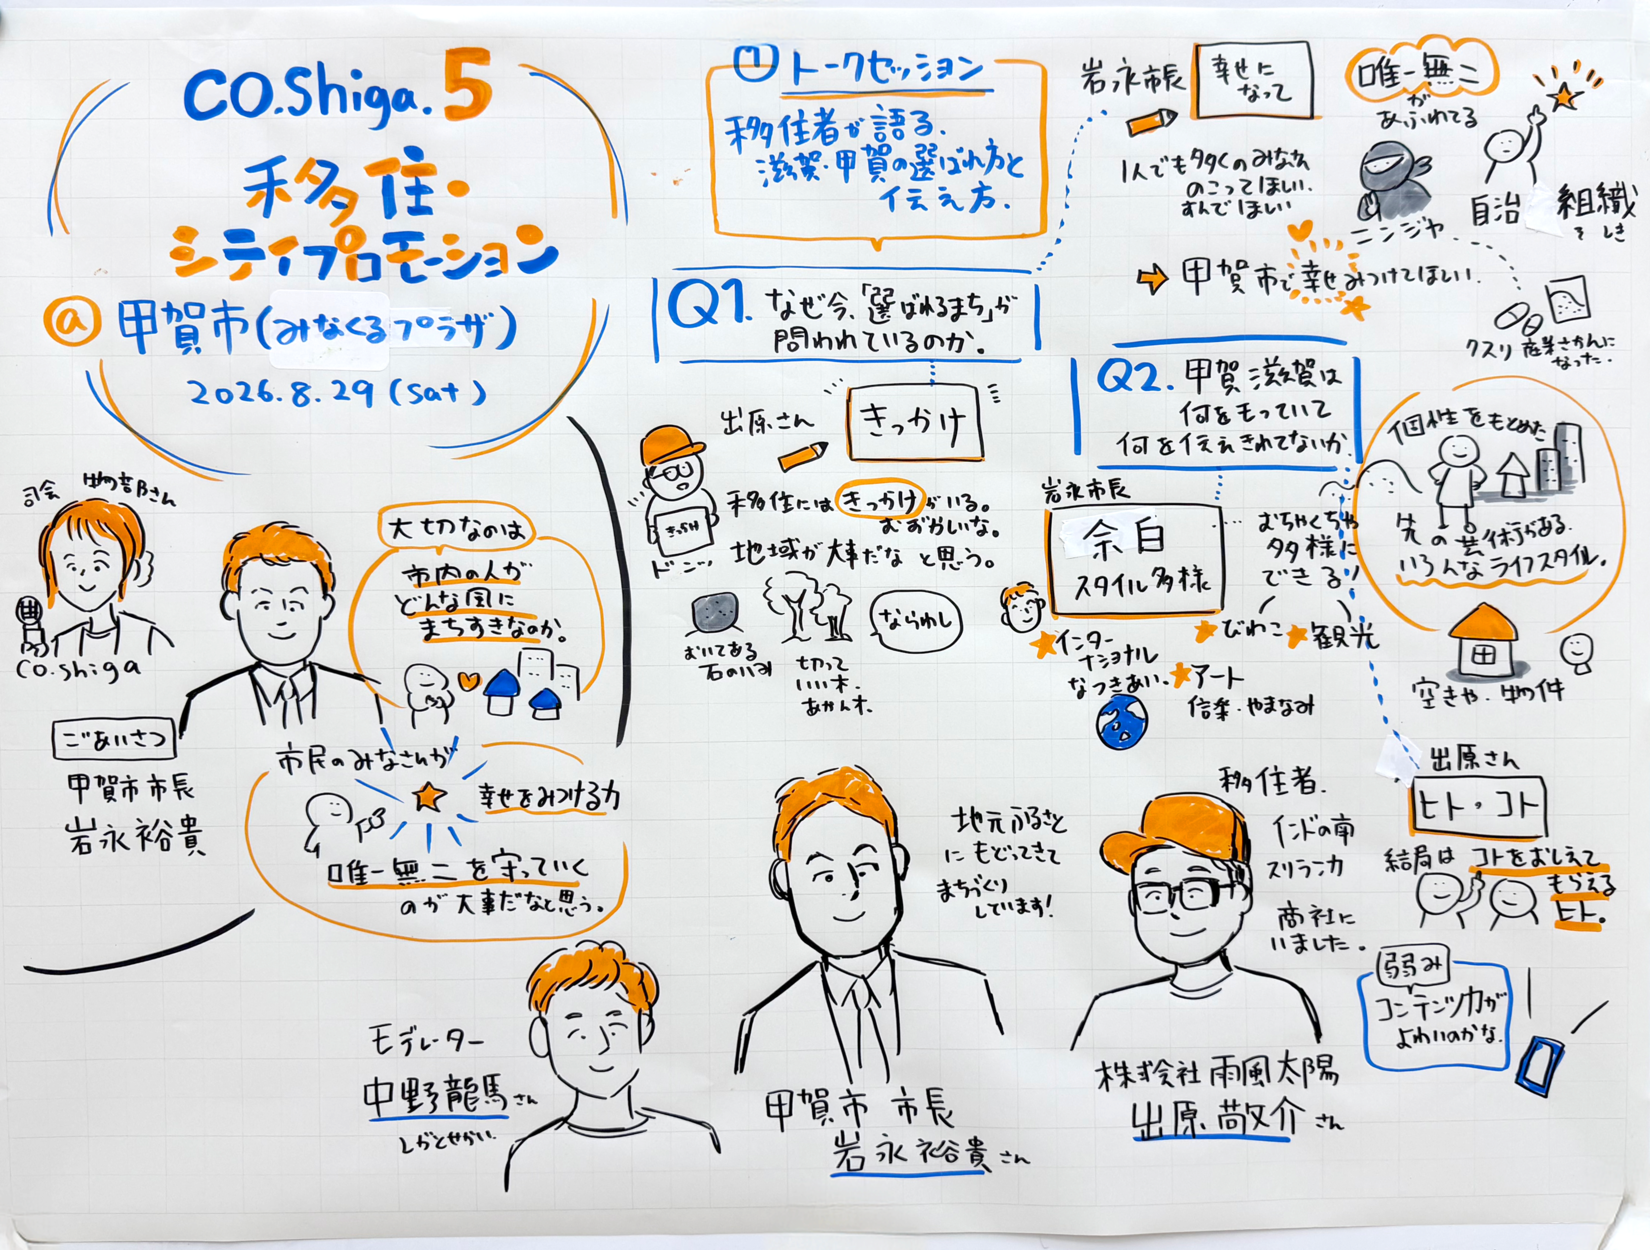 CO.Shiga.5
移住・
シティプロモーション
@甲賀市(みなくるプラザ)
2026.8.29(sat)
司会 物部さん
CO.Shiga
ごあいさつ
甲賀市市長
岩永裕貴
大切なのは
市内の人が
どんな風に
まちすきなのか。
市民のみなさんが
幸せをみつける力
唯一無二を守っていく
のが大事だなと思う。
モデレーター
中野龍馬さん
しがとせかい
① トークセッション
移住者が語る、
滋賀・甲賀の選ばれ方と
伝え方。
Q1. なぜ今、「選ばれるまち」が
問われているのか。
出原さん
きっかけ
きっかけ
ドンッ
移住にはきっかけがいる。
むずかしいな。
地域が大事だなと思う。
おいてある
石のいみ
切って
いい木、
あかん木。
ならわし
岩永市長
幸せに
なって
1人でも多くのみなさん
のこってほしい。
すんでほしい
甲賀市で幸せみつけてほしい。
唯一無二
が
あふれてる
ニンジャ
自治組織
そしき
クスリ産業さかんに
なった。
Q2. 甲賀 滋賀は
何をもっていて
何を伝えきれてないか
岩永市長
余白
スタイル多様
むちゃくちゃ
多様に
できる!
びわこ
観光
インター
ナショナル
なつきあい。
アート
信楽・やまなみ
個性をもとめた
先の芸術がある。
いろんなライフスタイル。
空きや・物件
出原さん
ヒト・コト
結局はコトをおしえて
もらえる
ヒト。
弱み
コンテンツ力が
よわいのかな。
地元ふるさと
にもどってきて
まちづくり
しています!
甲賀市 市長
岩永裕貴さん
移住者。
インドの南
スリランカ
商社に
いました。
株式会社雨風太陽
出原敬介さん